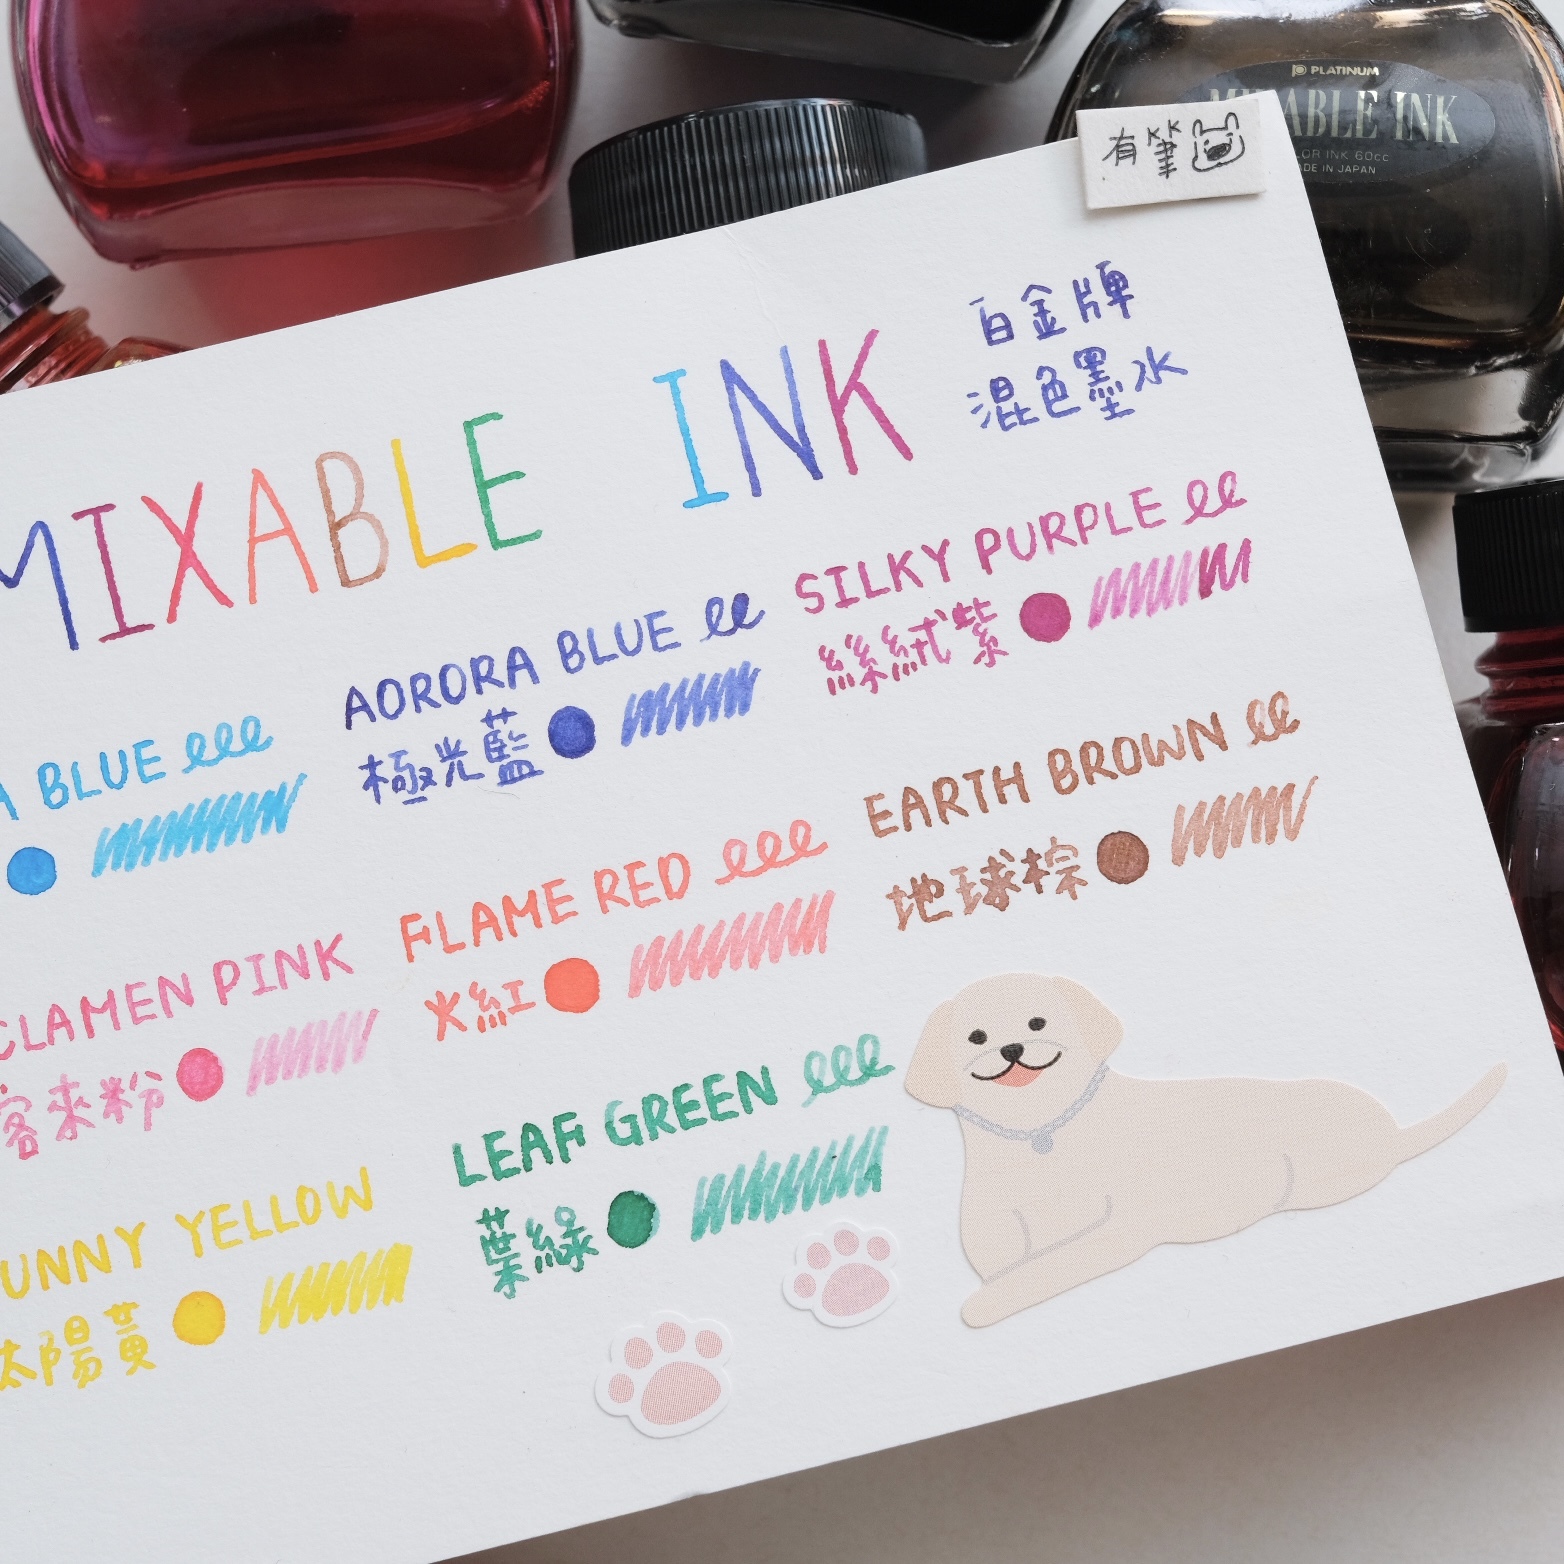 PLATINUM
MIXABLE INK
COLOR INK 60cc
MADE IN JAPAN
有筆
MIXABLE INK
白金牌
混色墨水
A BLUE
AORORA BLUE
極光藍
SILKY PURPLE
絲絨紫
CLAMEN PINK
客來粉
FLAME RED
火紅
EARTH BROWN
地球棕
UNNY YELLOW
太陽黃
LEAF GREEN
葉綠